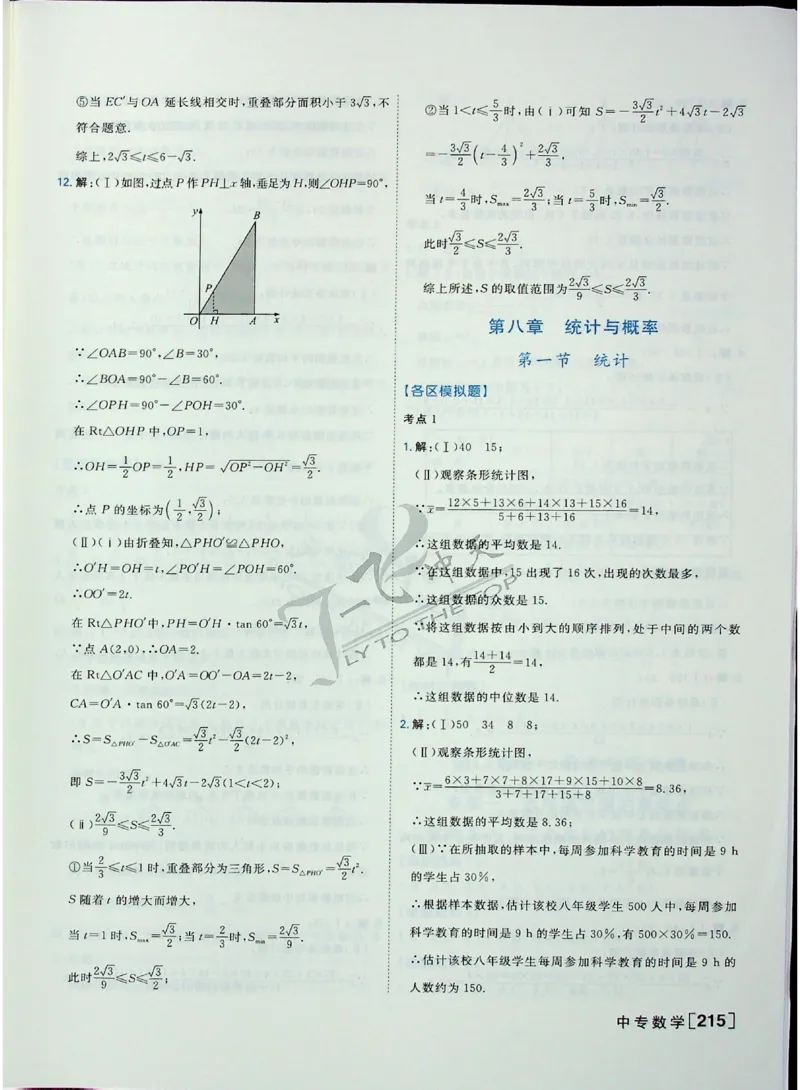 ⑤当 EC′与OA 延长线相交时,重叠部分面积小于 3√3,不
符合题意.
综上,2√3≤t≤6-√3.
12.解:(Ⅰ)如图,过点P作PH⊥x轴,垂足为H,则∠OHP=90°,
y
B
P
O H A x
∵∠OAB=90°,∠B=30°,
∴∠BOA=90°-∠B=60°.
∴∠OPH=90°-∠POH=30°.
在 Rt△OHP 中,OP=1,
∴OH=1/2OP=1/2,HP=√(OP²-OH²)=√3/2.
∴点 P 的坐标为(1/2,√3/2);
(Ⅱ)(ⅰ)由折叠知,△PHO′≌△PHO,
∴O′H=OH=t,∠PO′H=∠POH=60°.
∴OO′=2t.
在 Rt△PHO′中,PH=O′H·tan 60°=√3t,
∵点 A(2,0),∴OA=2.
在 Rt△O′AC 中,O′A=OO′-OA=2t-2,
CA=O′A·tan 60°=√3(2t-2),
∴S=S△PHO′-S△O′AC=√3/2t²-√3/2(2t-2)²,
即 S=-3√3/2t²+4√3t-2√3(1<t<2);
(ⅱ)2√3/9≤S≤2√3/3.
①当2/3≤t≤1时,重叠部分为三角形,S=S△PHO′=√3/2t².
S 随着 t 的增大而增大,
当 t=1时,Smax=√3/2;当 t=2/3时,Smin=2√3/9.
此时2√3/9≤S≤√3/2;
②当 1<t≤5/3时,由(ⅰ)可知 S=-3√3/2t²+4√3t-2√3
=-3√3/2(t-4/3)²+2√3/3,
当 t=4/3时,Smax=2√3/3;当 t=5/3时,Smin=√3/2.
此时√3/2≤S≤2√3/3.
综上所述,S的取值范围为2√3/9≤S≤2√3/3.
第八章 统计与概率
第一节 统计
【各区模拟题】
考点 1
1.解:(Ⅰ)40 15;
(Ⅱ)观察条形统计图,
∵x̄=(12×5+13×6+14×13+15×16)/(5+6+13+16)=14,
∴这组数据的平均数是 14.
∵在这组数据中,15 出现了 16 次,出现的次数最多,
∴这组数据的众数是 15.
∵将这组数据按由小到大的顺序排列,处于中间的两个数
都是 14,有(14+14)/2=14,
∴这组数据的中位数是 14.
2.解:(Ⅰ)50 34 8 8;
(Ⅱ)观察条形统计图,
∵x̄=(6×3+7×7+8×17+9×15+10×8)/(3+7+17+15+8)=8.36,
∴这组数据的平均数是 8.36;
(Ⅲ)∵在所抽取的样本中,每周参加科学教育的时间是 9 h
的学生占 30%,
∴根据样本数据,估计该校八年级学生 500 人中,每周参加
科学教育的时间是 9 h 的学生占 30%,有 500×30%=150.
∴估计该校八年级学生每周参加科学教育的时间是 9 h 的
人数约为 150.
一飞冲天
FLY TO THE TOP
中专数学[215]